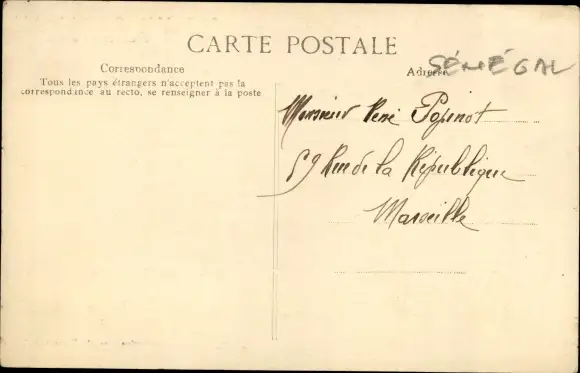 CARTE POSTALE
Correspondance
Tous les pays étrangers n'acceptent pas la
correspondance au recto, se renseigner à la poste
Adresse
SÉNÉGAL
Monsieur René Popinot
59 Rue de la République
Marseille